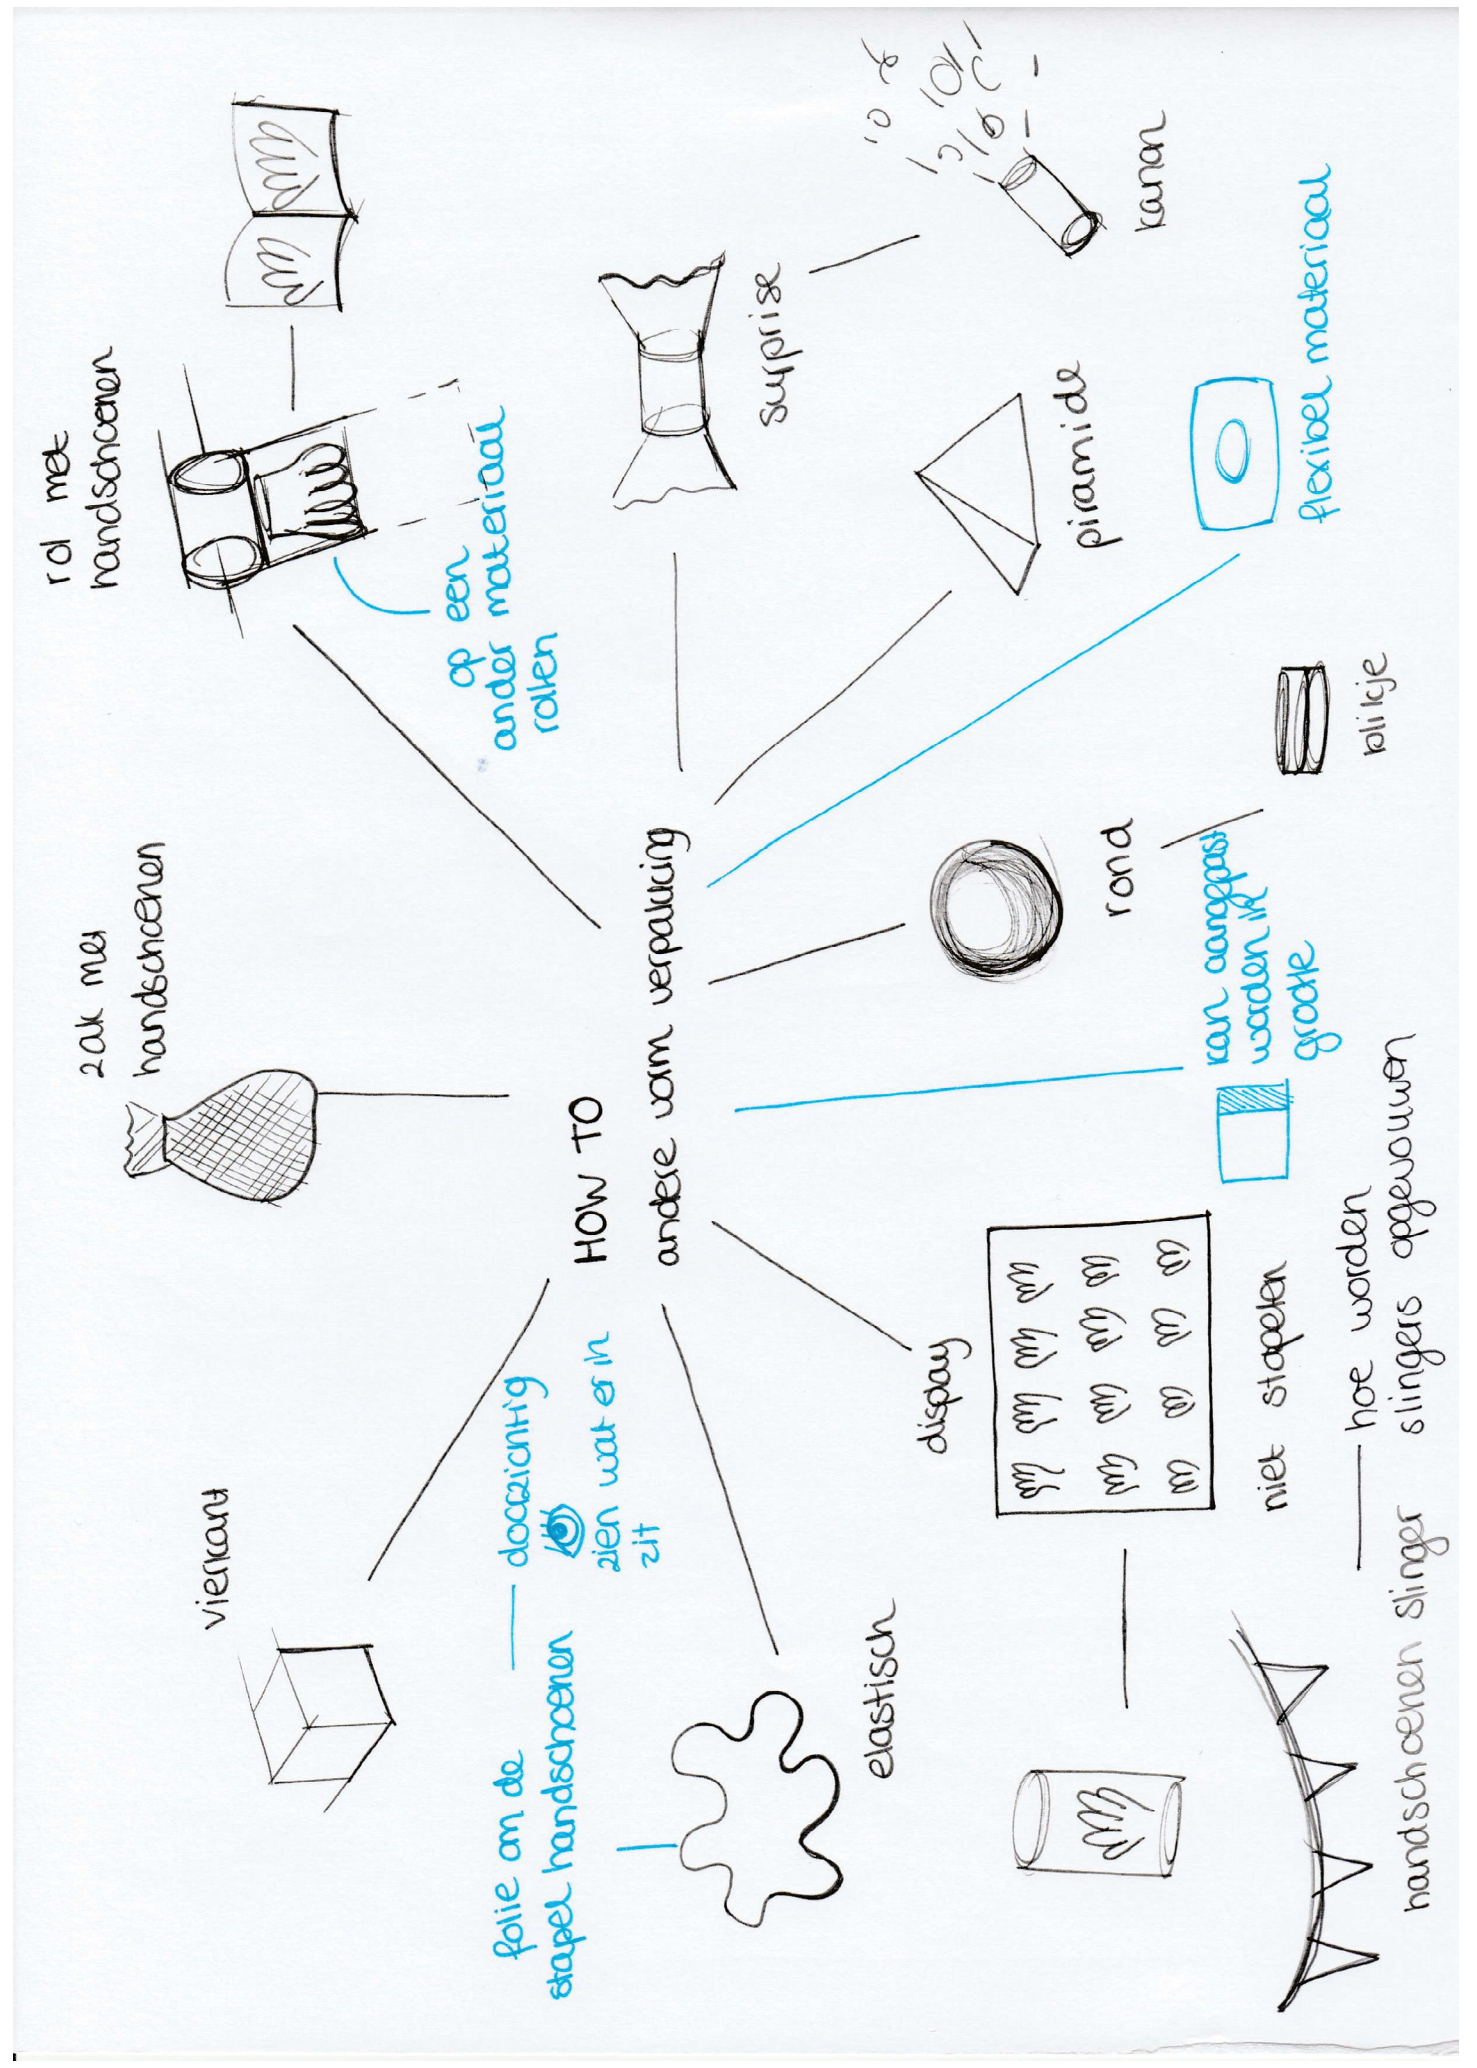 HOW TO
andere vorm verpakking
vierkant
zak met
handschoenen
rol met
handschoenen
op een
ander materiaal
rollen
surprise
kanon
piramide
flexibel materiaal
rond
blikje
kan aangepast
worden in
grootte
display
niet stapelen
handschoenen slinger
hoe worden
slingers opgevouwen
elastisch
folie om de
stapel handschoenen
doorzichtig
zien wat er in
zit